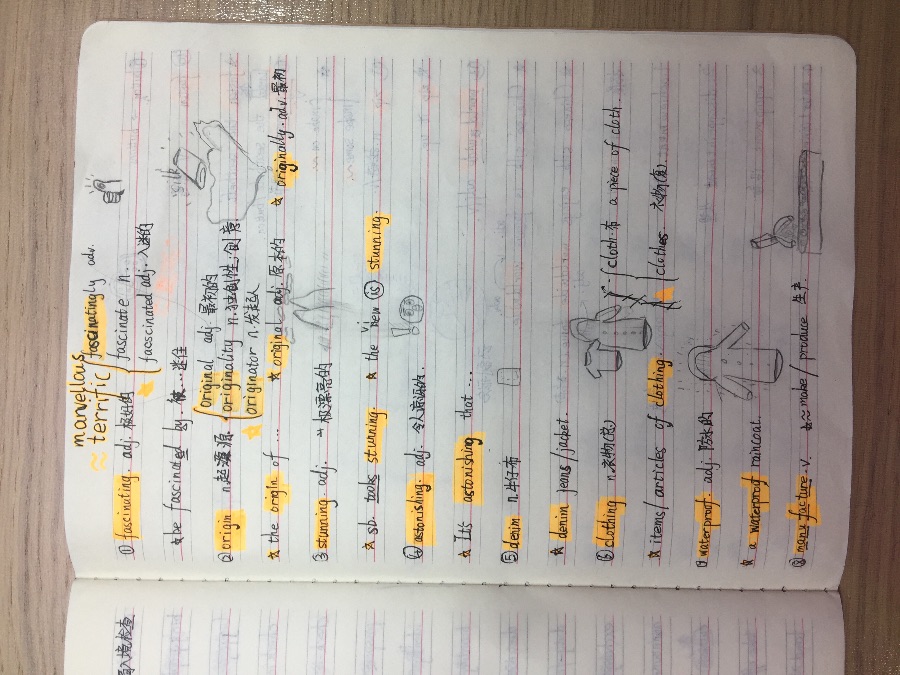 marvellous
≈ terrific
fascinatingly adv.
① fascinating. adj. 极好的 fascinate n.
faoscinated adj. 入迷的
☆ be fascinated by. 被…迷住
silk
original adj 最初的
② origin n.起源 源 originality n.独创性;创意
☆ originator n.发起人
☆ the origin of … ☆ original adj.原本的 ☆ originally.adv.最初
③ stunning. adj. 极漂亮的
☆ sb. looks stunning. ☆ the view is stunning.
④ astonishing. adj. 令人惊讶的.
☆ It's astonishing that …
⑤ denim n.牛仔布
☆ denim jeans/jacket.
⑥ clothing n.衣物(总) cloth.布 a piece of cloth
☆ items/articles of clothing ☆ clothes 衣物(复)
⑦ waterproof. adj. 防水的
☆ a waterproof raincoat.
⑧ manufacture.v. ☆≈make/produce 生产.
入境检查